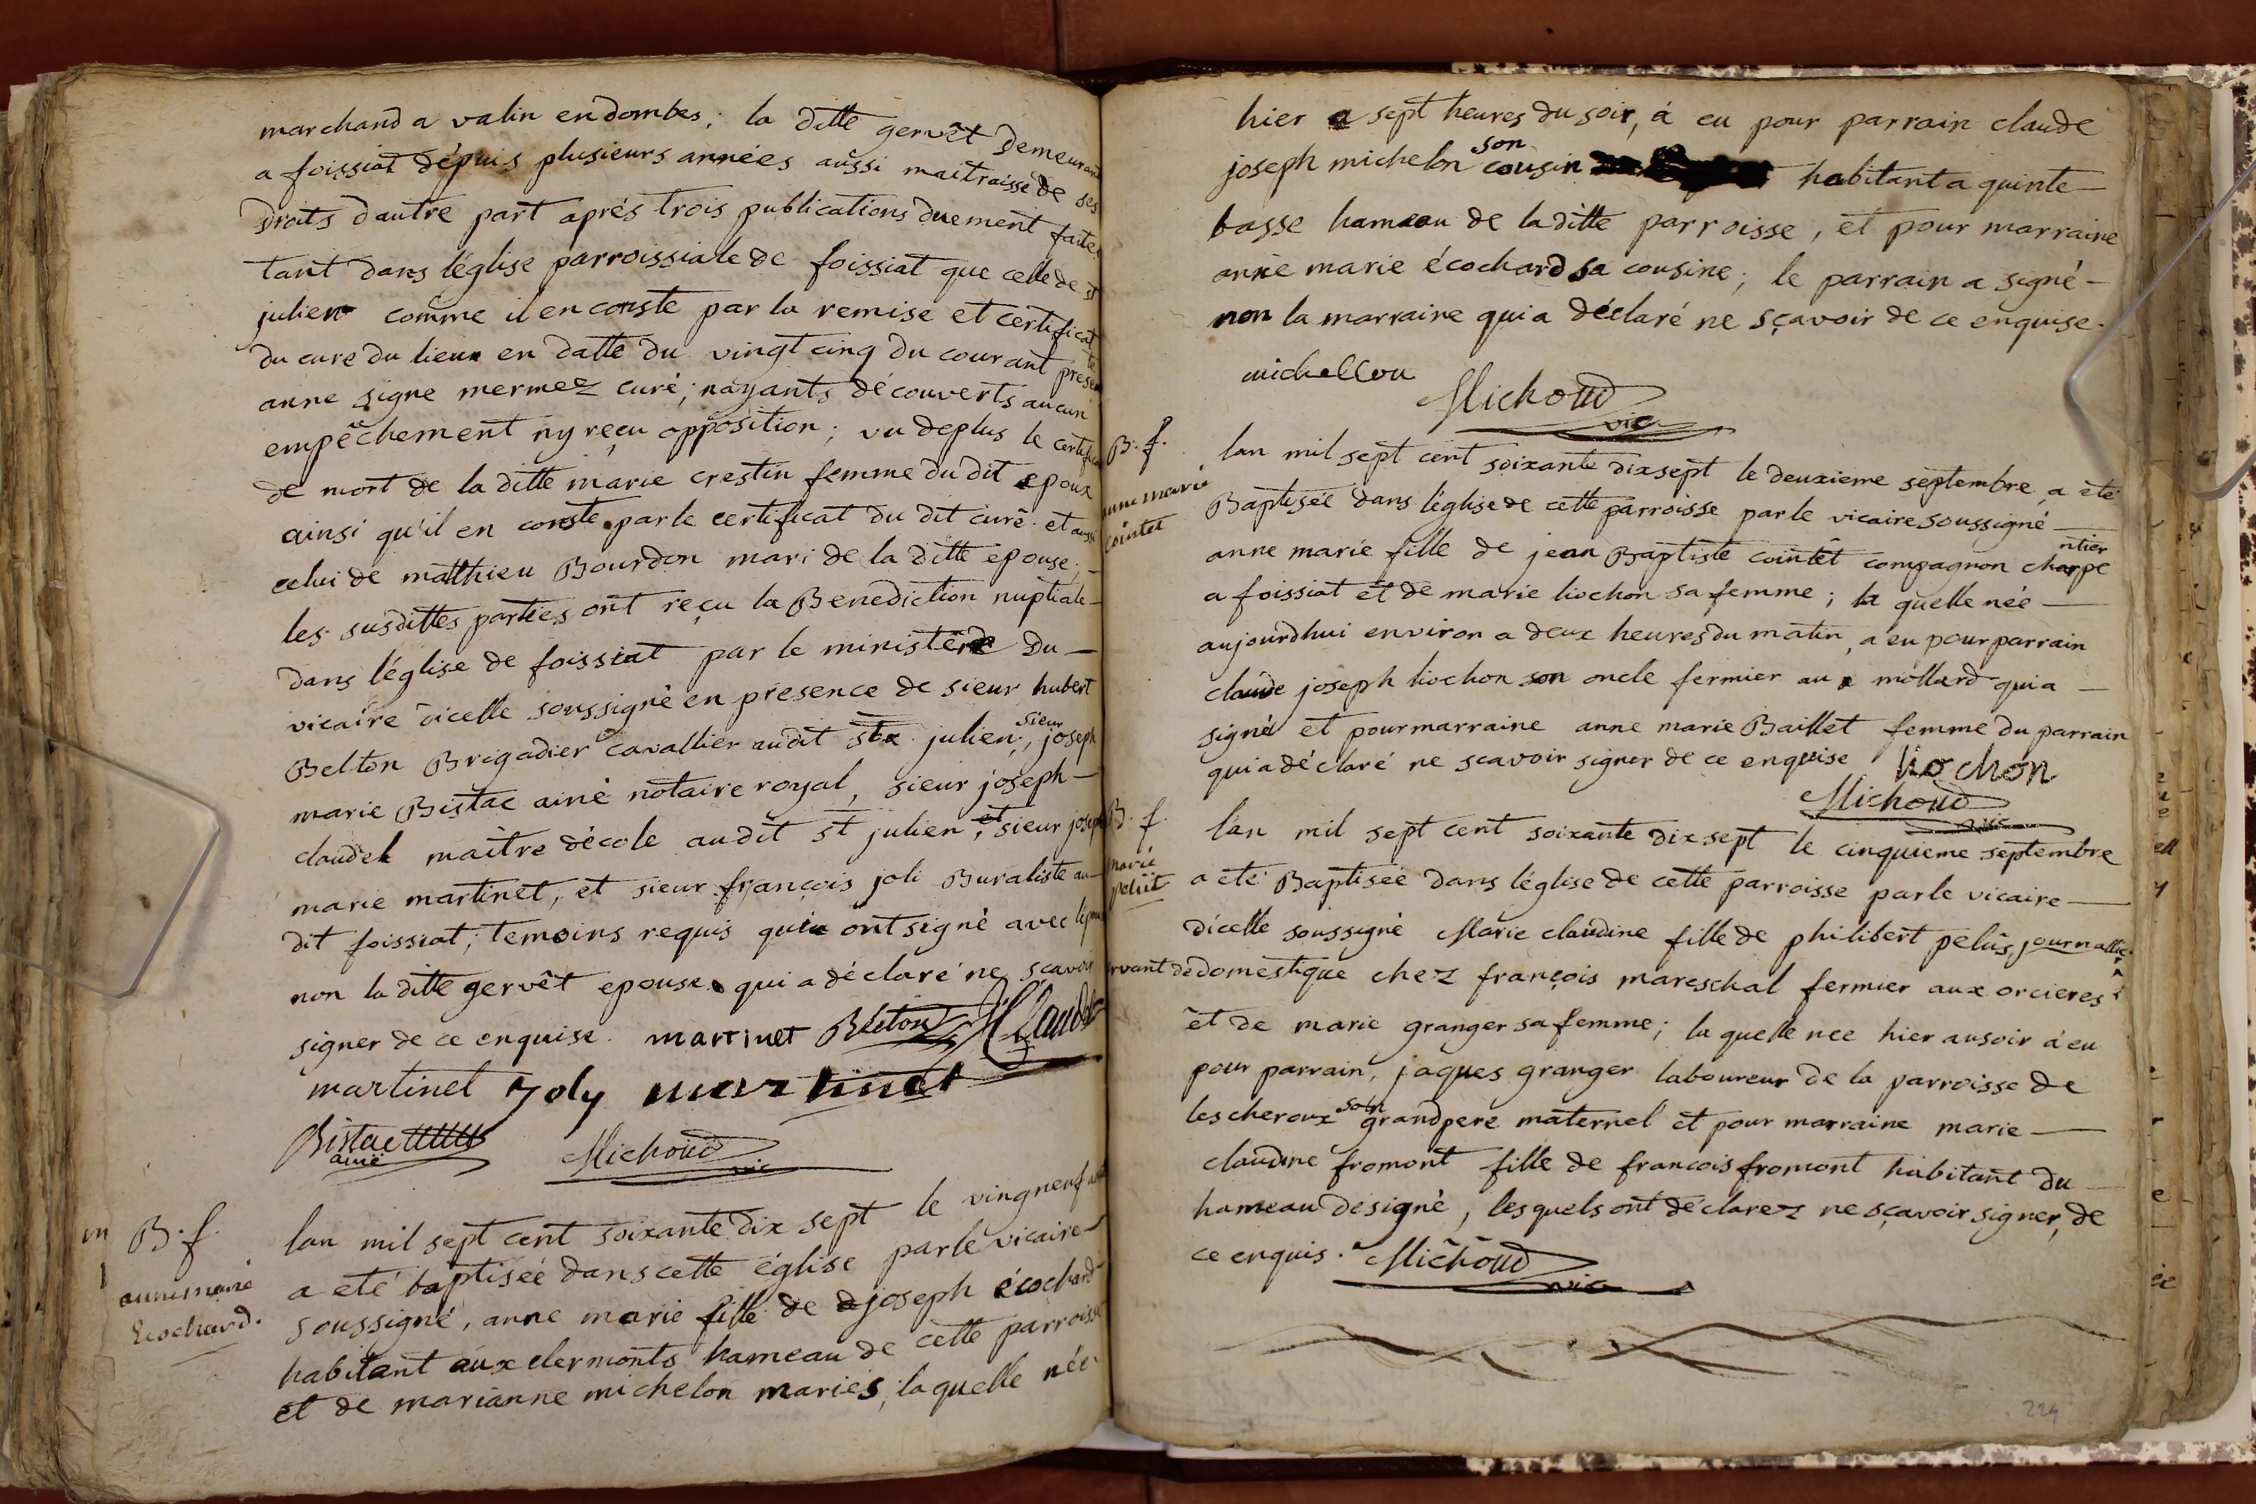 marchand a valin en dombes; la ditte gervêt demeurant
a foissiat dépuis plusieurs années aussi maitraisse de ses
droits d'autre part aprés trois publications duement faites
tant dans léglise parroissiale de foissiat que celle de st
julien comme il en conste par la remise et certificat
du cure du lieu en datte du vingt cinq du courant presente
anne signe mermez curé; nayants découverts aucun
empêchement ny reçu opposition; vu deplus le certificat
de mort de la ditte marie crestin femme du dit epoux
ainsi qu'il en conste par le certificat du dit curé et aussi
celui de matthieu Bourdon mari de la ditte épouse;
les susdittes parties ont reçu la Benediction nuptiale
dans l'église de foissiat par le ministére du
vicaire dicelle soussigné en presence de sieur hubert
Belton Brigadier cavallier audit st julien, sieur joseph
marie Bistac ainé notaire royal, sieur joseph
claudel maître décole audit st julien, et sieur joseph
marie martinet, et sieur françois joli Buraliste au
dit foissiat; temoins requis qui ont signé avec lepoux
non la ditte gervêt epouse qui a déclaré ne sçavoir
signer de ce enquise. martinet Belton Claudel
martinet Joly martinet
Bistac
ainé Michoud
vic
B. f.
anne marie
Ecochard.
lan mil sept cent soixante dix sept le vingneuf aout
a eté baptiseé dans cette église par le vicaire
soussigné, anne marie fille de joseph écochard
habitant aux clermonts hameau de cette parroisse
et de marianne michelon mariés; la quelle née
hier a sept heures du soir, á eu pour parrain claude
joseph michelon son cousin habitant a quinte
basse hameau de laditte parroisse, et pour marraine
anne marie écochard sa cousine; le parrain a signé
non la marraine qui a déclaré ne sçavoir de ce enquise.
michellon Michoud
vic
B. f.
anne marie
cointet
lan mil sept cent soixante dixsept le deuxieme septembre a eté
Baptiseé dans l'église de cette parroisse par le vicaire soussigné
anne marie fille de jean Baptiste cointet compagnon charpentier
a foissiat et de marie liochon sa femme; la quelle née
aujourdhui environ a deux heures du matin, a eu pour parrain
claude joseph liochon son oncle fermier au mollard qui a
signé et pour marraine anne marie Baillet femme du parrain
qui a déclaré ne scavoir signer de ce enquise liochon
Michoud
vic
B. f.
marie
pelut
l'an mil sept cent soixante dix sept le cinquieme septembre
a eté Baptiseé dans léglise de cette parroisse par le vicaire
dicelle soussigné Marie claudine fille de philibert pelus, journallier
servant de domestique chez françois mareschal fermier aux orcieres
et de marie granger sa femme; la quelle nee hier ausoir á eu
pour parrain, jaques granger laboureur de la parroisse de
lescheroux son grandpere maternel et pour marraine marie
claudine fromont fille de francois fromont habitant du
hameau designé, lesquels ont déclarez ne sçavoir signer, de
ce enquis. Michoud
vic
224